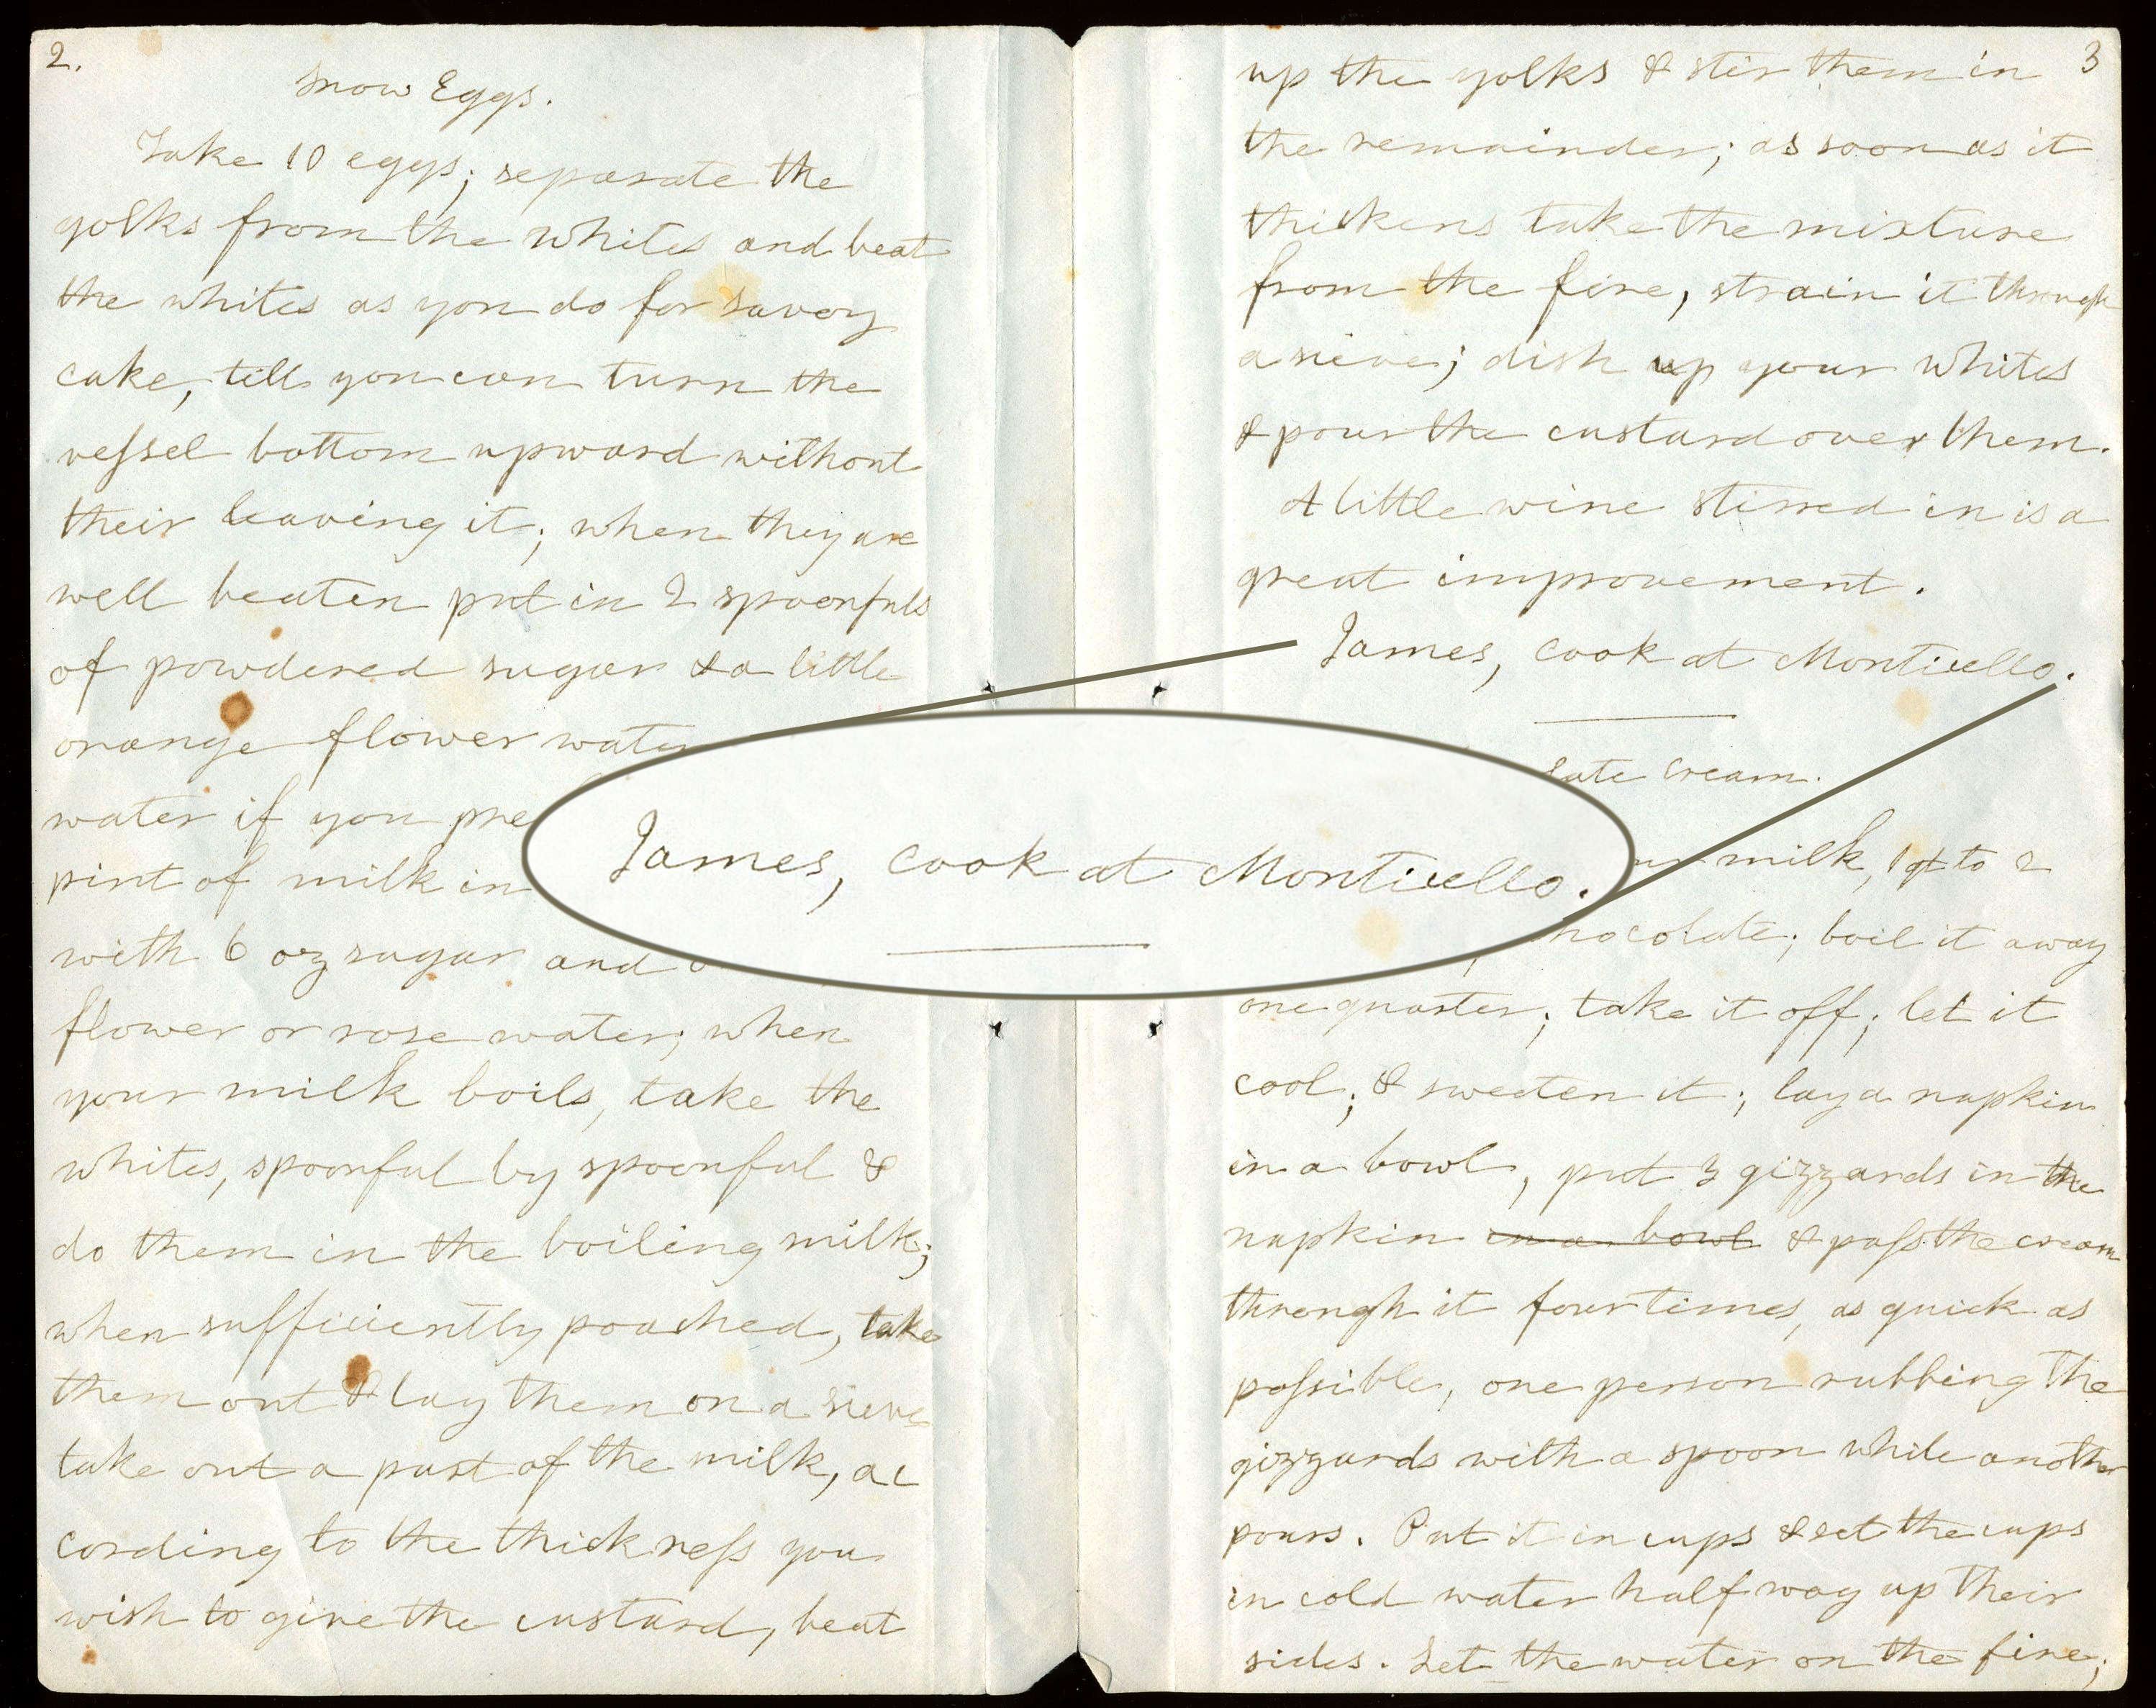 2.
Snow Eggs.
Take 10 eggs; separate the
yolks from the whites and beat
the whites as you do for savoy
cake, till you can turn the
veſsel bottom upward without
their leaving it; when they are
well beaten put in 2 spoonfuls
of powdered sugar & a little
orange flower water
water if you pre
pint of milk in
with 6 oz sugar and o
flower or rose water; when
your milk boils, take the
whites, spoonful by spoonful &
do them in the boiling milk;
when sufficiently poached, take
them out & lay them on a sieve
take out a part of the milk, ac
cording to the thickneſs you
wish to give the custard, beat
3
up the yolks & stir them in
the remainder; as soon as it
thickens take the mixture
from the fire, strain it through
a sieve; dish up your whites
& pour the custard over them.
A little wine stirred in is a
great improvement.
James, cook at Monticello.
James, cook at Monticello.
late Cream.
ur milk, 1 qt to 2
hocolate; boil it away
one quarter; take it off; let it
cool; & sweeten it; lay a napkin
in a bowl, put 3 gizzards in the
napkin in a bowl & paſs the cream
through it four times, as quick as
poſsible, one person rubbing the
gizzards with a spoon while another
pours. Put it in cups & set the cups
in cold water half way up their
sides. Set the water on the fire;